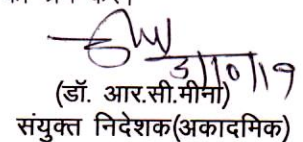 3/10/19
(डॉ. आर.सी.मीना)
संयुक्त निदेशक(अकादमिक)